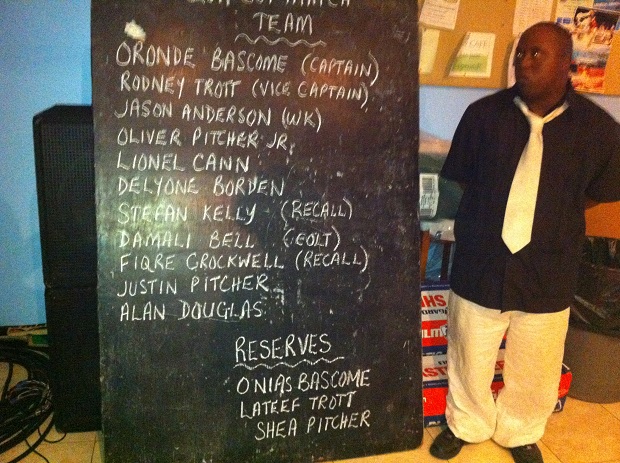 CUP MATCH
TEAM
ORONDE BASCOME (CAPTAIN)
RODNEY TROTT (VICE CAPTAIN)
JASON ANDERSON (WK)
OLIVER PITCHER JR.
LIONEL CANN
DELYONE BORDEN
STEFAN KELLY (RECALL)
DAMALI BELL (COLT)
FIQRE CROCKWELL (RECALL)
JUSTIN PITCHER
ALAN DOUGLAS
RESERVES
ONIAS BASCOME
LATEEF TROTT
SHEA PITCHER